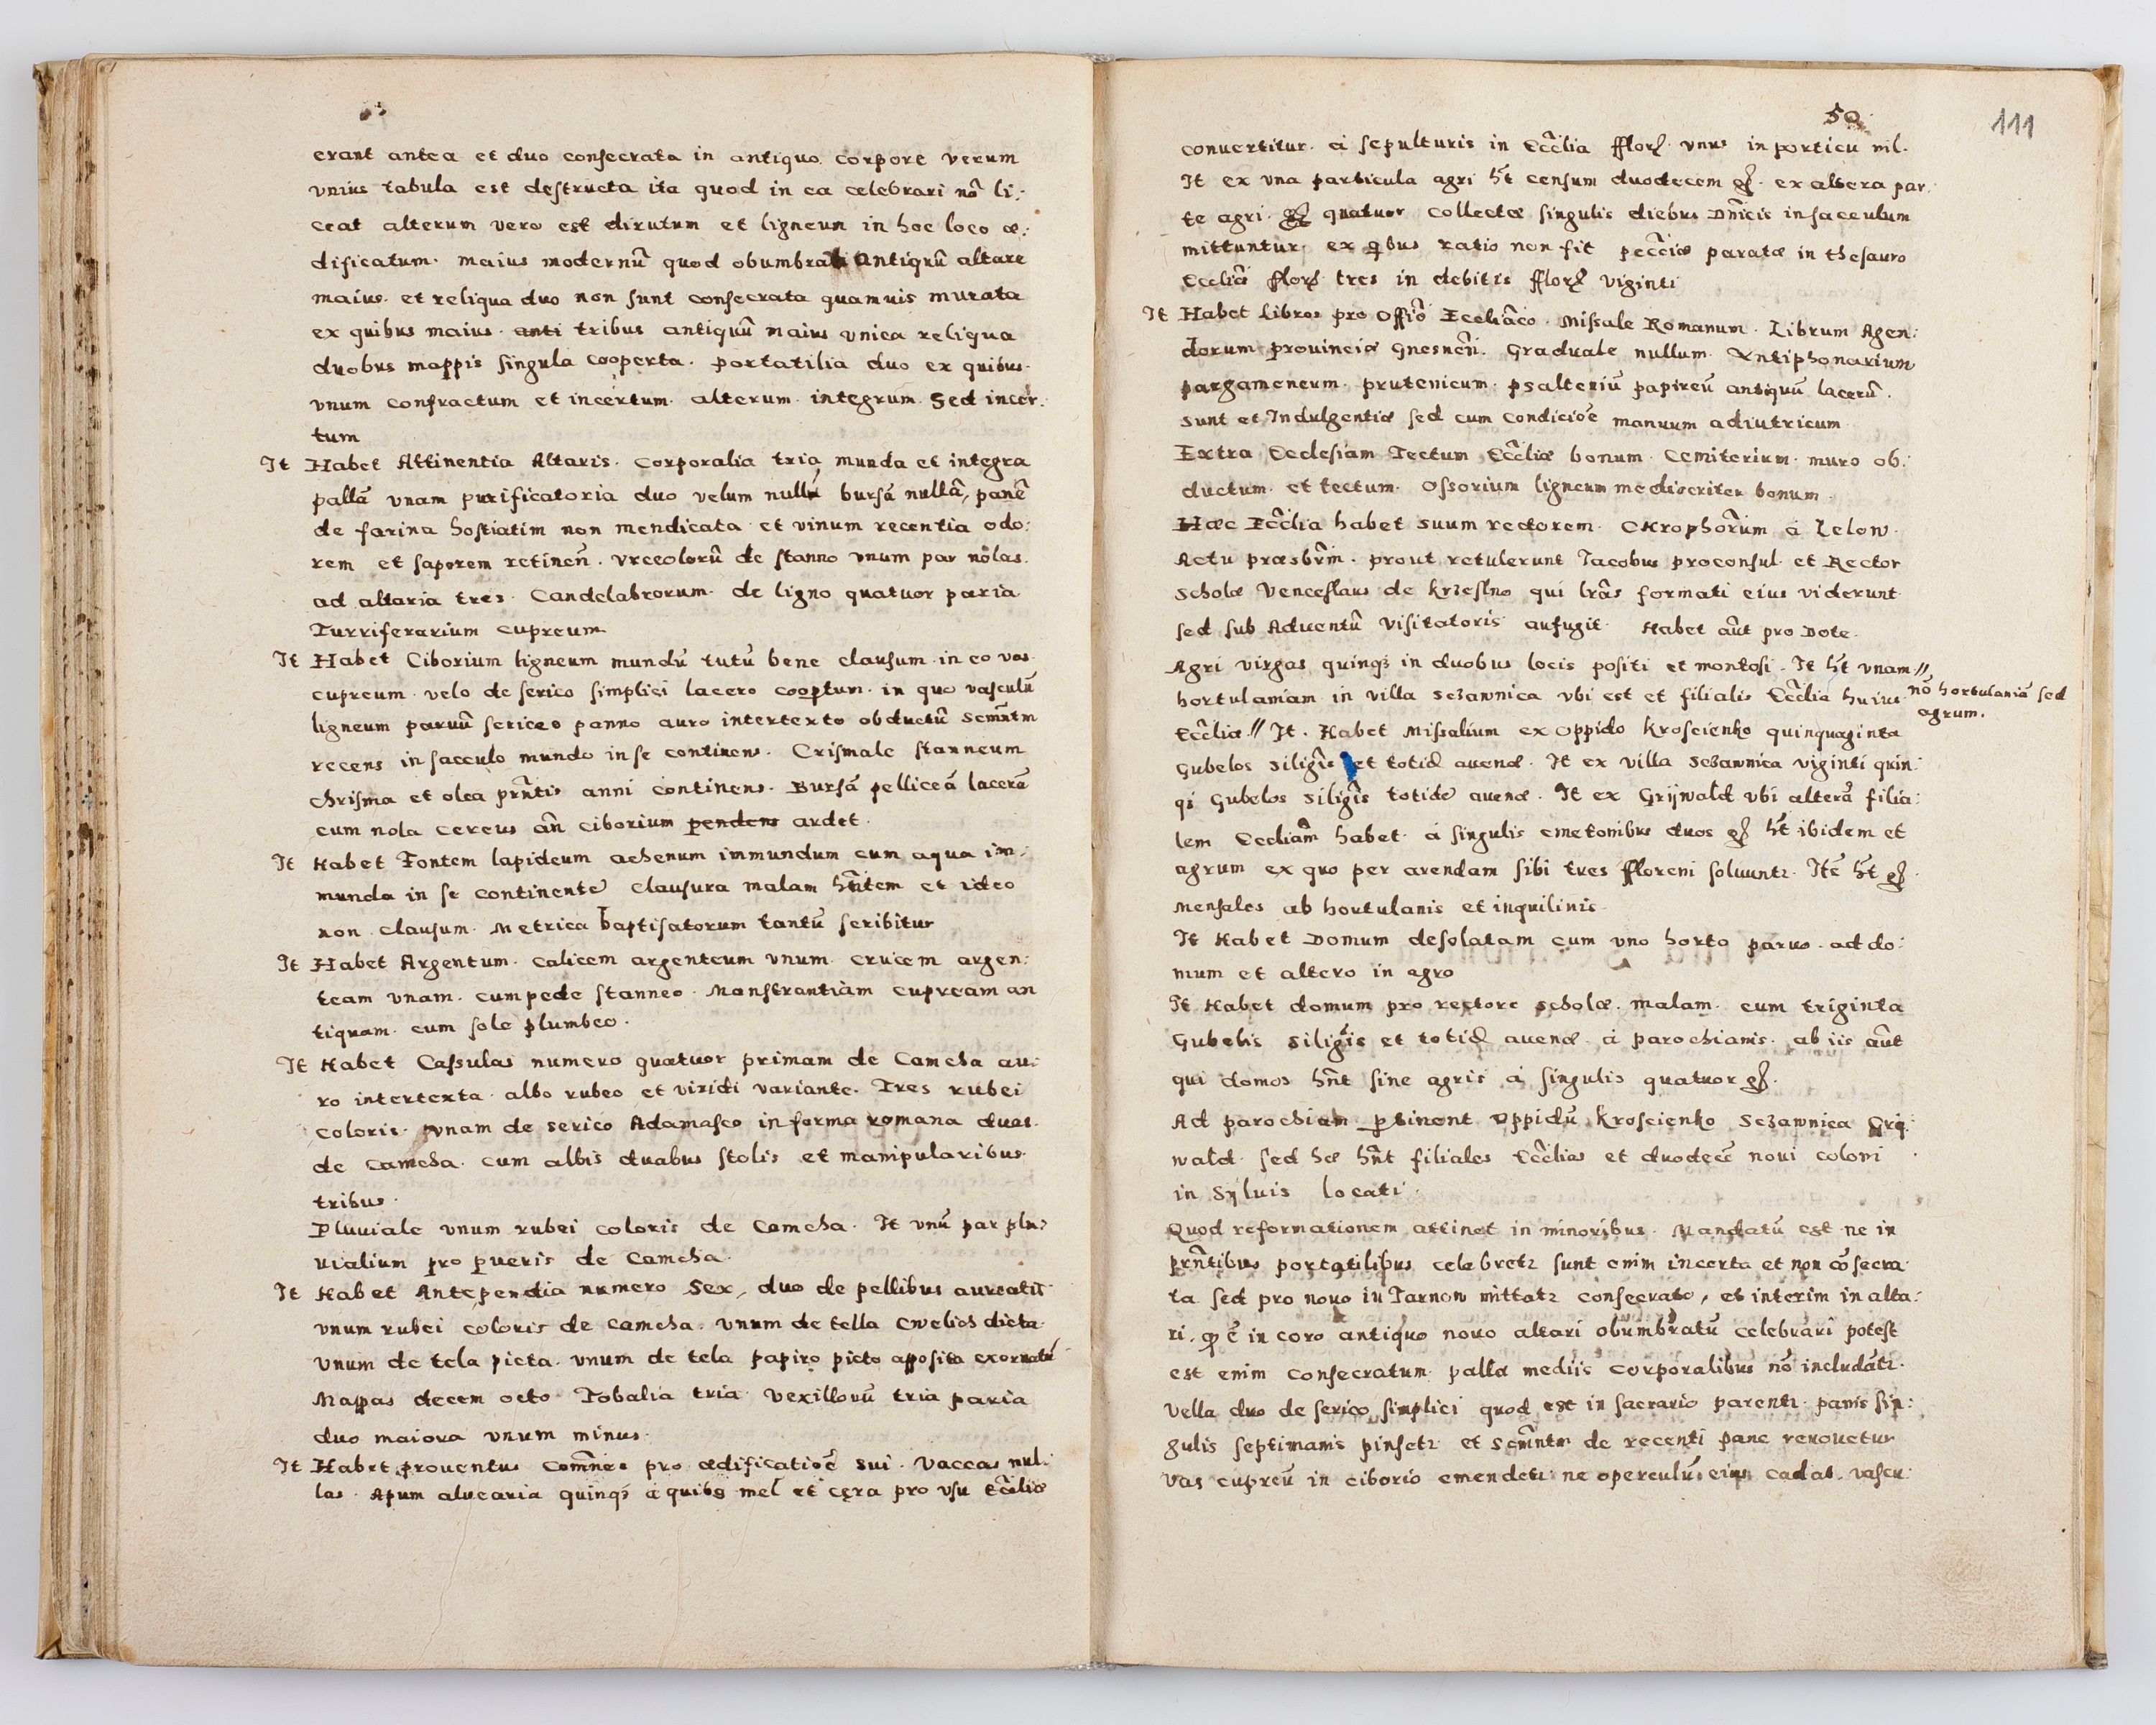 erant antea et duo consecrata in antiquo corpore verum
vnius tabula est destructa ita quod in ea celebrari nõ li:
ceat alterum vero est dirutum et ligneum in hoc loco æ:
dificatum. maius modernũ quod obumbrat antiquũ altare
maius. et reliqua duo non sunt consecrata quamuis murata
ex quibus maius. anti tribus antiquũ maius vnica reliqua
duobus mappis singula cooperta. portatilia duo ex quibus.
vnum confractum et incertum. alterum integrum. Sed incer:
tum
It Habet Attinentia Altaris. Corporalia tria munda et integra
pallã vnam purificatoria duo velum nullũ bursã nullã, panẽ
de farina hostiatim non mendicata et vinum recentia odo:
rem et saporem retinen̄. vrceolorũ de stanno vnum par nõlas.
ad altaria tres. Candelabrorum. de ligno quatuor paria
Turriferarium cupreum
It Habet Ciborium ligneum mundũ tutũ bene clausum in eo vas
cupreum velo de serico simplici lacero cooptum. in quo vasculũ
ligneum paruũ sericeo panno auro intertexto obductũ Scm̃ntm
recens in sacculo mundo in se continens. Crismale stanneum
chrisma et olea prñtis anni continens. Bursã pelliceã lacerã
cum nola cereus añ ciborium pendens ardet.
It Habet Fontem lapideum ahenum immundum cum aqua im:
munda in se continente clausura malam hñtem et ideo
non clausum. Metrica baptisatorum tantũ scribitur
It Habet Argentum. calicem argenteum vnum. crucem argen:
team vnam. cum pede stanneo. Monstrantiam cupream an
tiquam. cum sole plumbeo.
It Habet Cassulas numero quatuor primam de Camcha au:
ro intertexta albo rubeo et viridi variante. Tres rubei
coloris. vnam de serico Adamasco in forma romana duas.
de camcha. cum albis duabus stolis et manipularibus.
tribus.
Pluuiale vnum rubei coloris de Camcha. It vnũ par plu:
uialium pro pueris de Camcha.
It Habet Antependia numero Sex, duo de pellibus aureatis
vnum rubei coloris de camcha. vnum de tella cwelich dicta
vnum de tela picta. vnum de tela papiro picto apposita exornatũ
Mappas decem octo Tobalia tria Vexillorũ tria paria
duo maiora vnum minus.
It Habet prouentus Com̃nes pro ædificatiõe sui. Vaccas nul:
las. Apum aluearia quinq3 a quibs mel et cera pro vsu Eccliæ
50
111
conuertitur. à sepulturis in Ecclia fflor. vnus in porticu nil.
It ex vna particula agri ht censum duodecem gſ. ex altera par:
te agri. gſ quatuor Collectæ singulis diebus Dnicis in sacculum
mittuntur. ex qbus ratio non fit pecciæ paratæ in thesauro
Eccliæ fflor tres in debitis fflor viginti
It Habet Libros pro Offio Eccliaco. Missale Romanum. Librum Agen:
dorum prouinciæ Gnesneñ. Graduale nullum. Antiphonarium
pargameneum. prutenicum. psalteriũ papireũ antiquũ lacerũ.
Sunt et Indulgentiæ sed cum condiciõe manuum adiutricum
Extra Ecclesiam Tectum Eccliæ bonum. Cemiterium muro ob:
ductum. et tectum. Ossorium ligneum mediocriter bonum.
Hæc Ecclia habet suum rectorem. Chrophorum à Lelow.
Actu præsbrm. prout retulerunt Jacobus proconsul et Rector
Scholæ Venceslaus de krzeslno qui lrãs formati eius viderunt
sed sub Aduentũ Visitatoris aufugit. Habet aũt pro Dote.
Agri virgas quinq3 in duobus locis positi et montosi. It ht vnam //
hortulaniam in villa Sczawnica vbi est et filialis Ecclia huius
nõ hortulaniã sed
agrum.
Eccliæ // It. Habet Missalium ex oppido Kroscienko quinquaginta
Gubelos Siligis et totid auenæ. It ex villa Sczawnica viginti quin:
qi Gubelos Siligis totide auenæ. It ex Grijwald vbi alterã filia:
lem Eccliam habet. à singulis cmetonibus duos gſ ht ibidem et
agrum ex quo per arendam sibi tres ffloreni soluunt2. Itẽ ht gſ.
mensales ab hortulanis et inquilinis.
It Habet Domum desolatam cum vno horto paruo. ad do:
mum et altero in agro
It Habet domum pro rectore scholæ. malam. cum triginta
Gubelis Siligis et totid auenæ à parochianis. ab iis aũt
qui domos hñt sine agris à singulis quatuor gſ.
Ad parochiam ptinent Oppidũ Kroscienko Sczawnica Grij
wald. sed hæ hñt filiales Ecclias et duodecẽ noui coloni
in Syluis locati.
Quod reformationem attinet in minoribus. Mandatũ est ne in
prñtibus portatilibus celebret2 sunt enim incerta et non cõsecra
ta sed pro nouo in Tarnow mittat2 consecrato, et interim in alta:
ri. q ẽ in coro antiquo nouo altari obumbratũ celebrari potest
est enim consecratum palla mediis corporalibus nõ includat2.
Vella duo de serico simplici quod est in sacrario parent2. panis sin:
gulis septimanis pinset2 et Scm̃ntm de recenti pane renouetur
Vas cupreũ in ciborio emendet2 ne operculũ eius cadat. vascu: